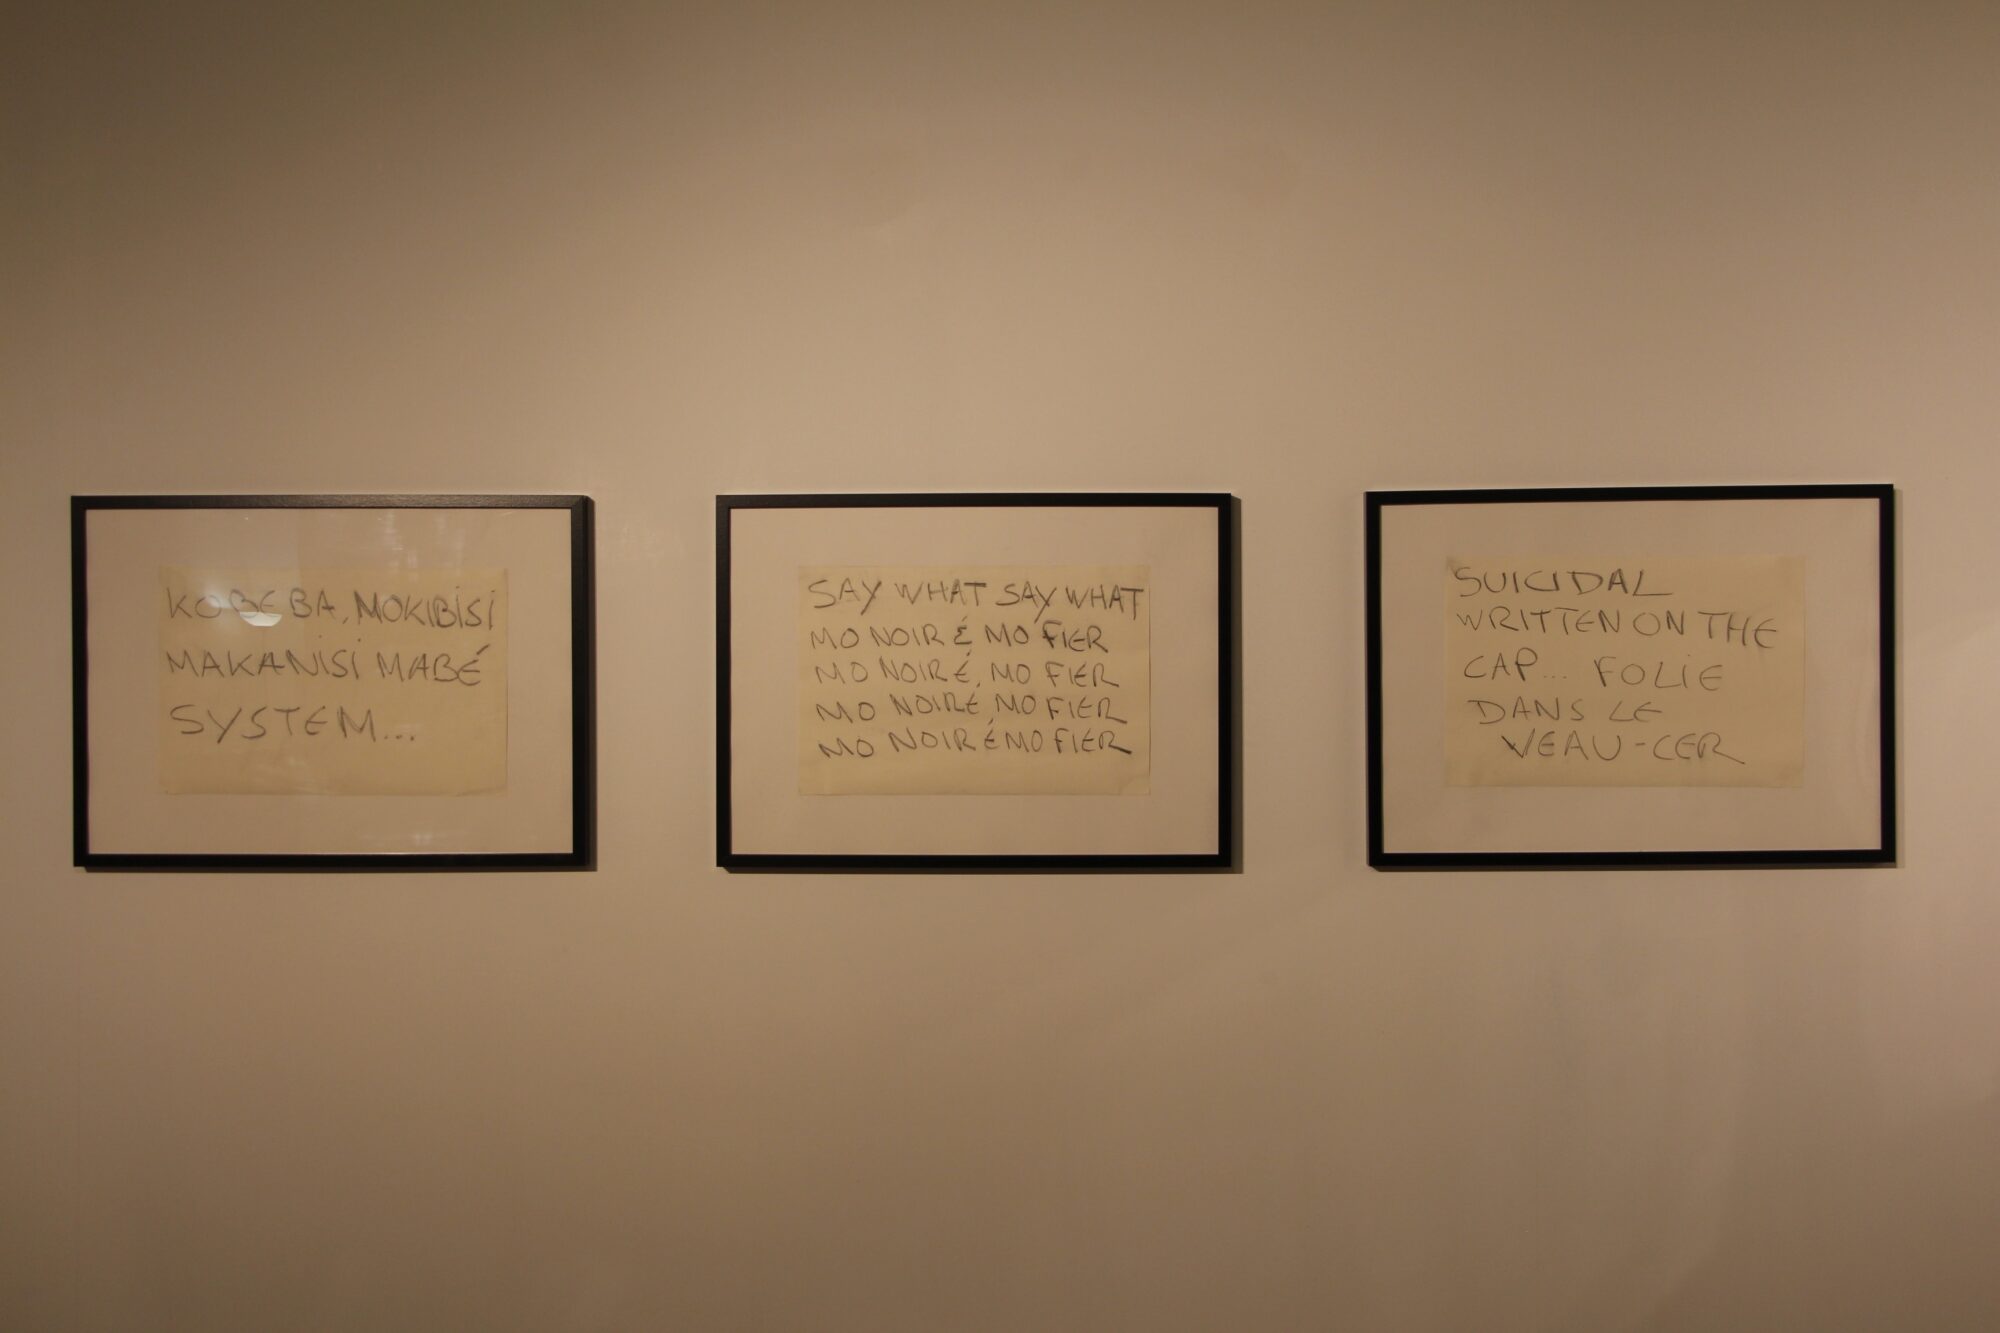 KOBEBA, MOKIBISI
MAKANISI MABÉ
SYSTEM...
SAY WHAT SAY WHAT
MO NOIR É MO FIER
MO NOIR É, MO FIER
MO NOIR É, MO FIER
MO NOIR É MO FIER
SUICIDAL
WRITTEN ON THE
CAP... FOLIE
DANS LE
VEAU-CER